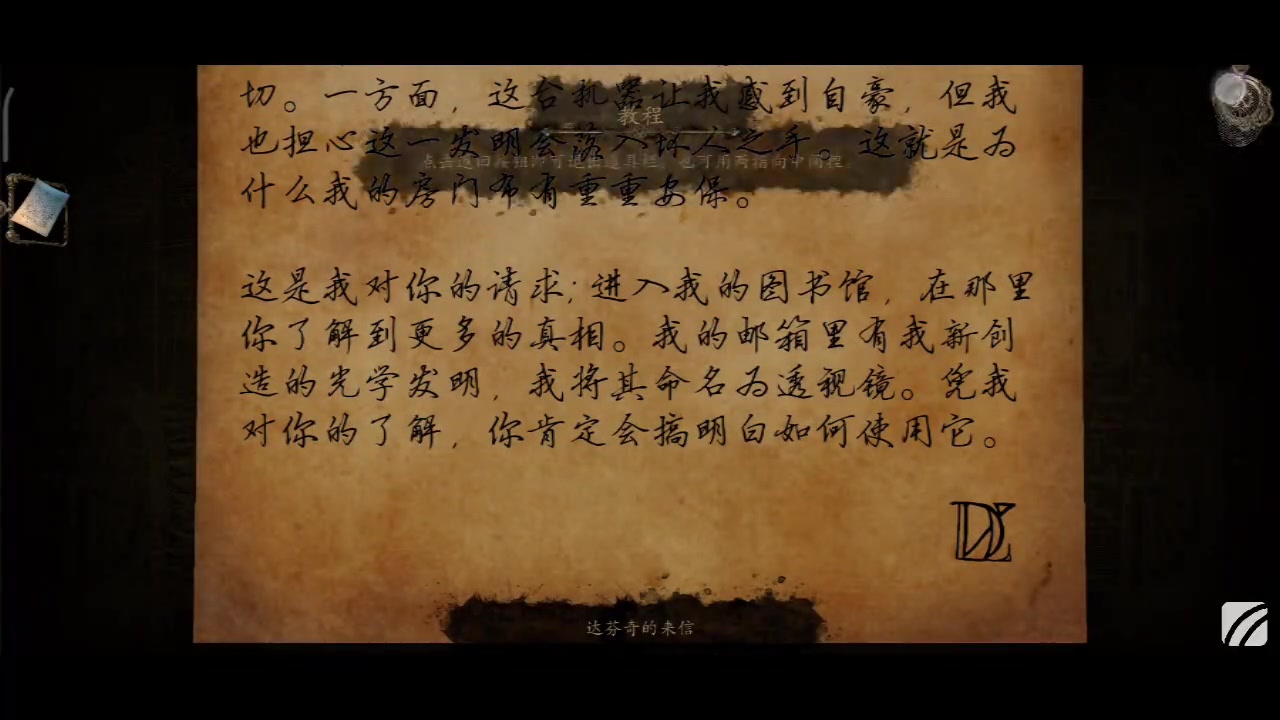 切。一方面，这台机器让我感到自豪，但我
教程
也担心这一发明会落入坏人之手。这就是为
点击返回按钮即可退出道具栏，也可用两指向中间捏。
什么我的房门布有重重安保。
这是我对你的请求；进入我的图书馆，在那里
你了解到更多的真相。我的邮箱里有我新创
造的光学发明，我将其命名为透视镜。凭我
对你的了解，你肯定会搞明白如何使用它。
达芬奇的来信